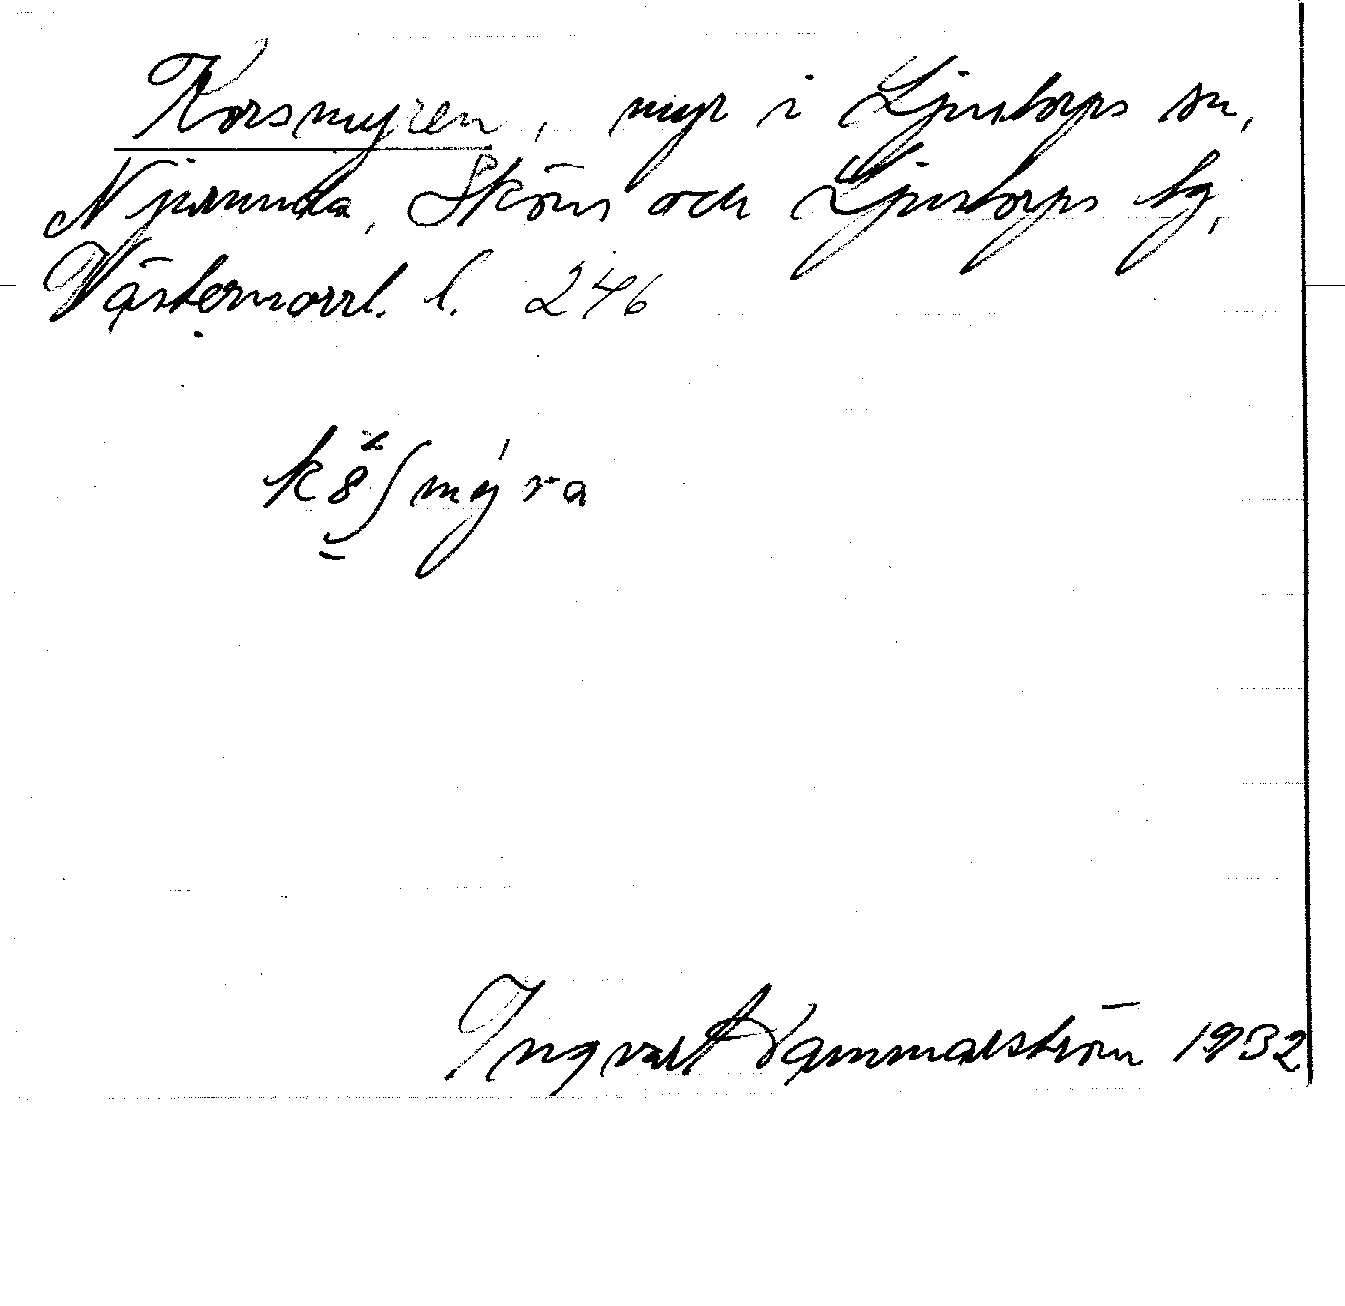 Korsmyren, myr i Ljustorps sn,
Njurunda, Sköns och Ljustorps tg,
Västernorrl. l. 246
k8̌ʃmýra
Ingvart Hammarström 1932